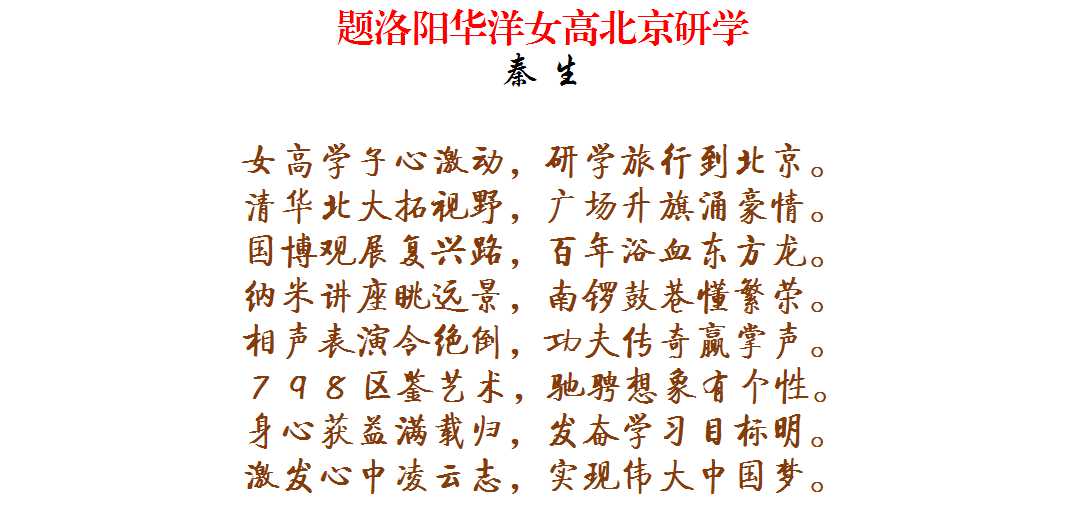 题洛阳华洋女高北京研学
秦 生
女高学子心激动，研学旅行到北京。
清华北大拓视野，广场升旗涌豪情。
国博观展复兴路，百年浴血东方龙。
纳米讲座眺远景，南锣鼓巷懂繁荣。
相声表演令绝倒，功夫传奇赢掌声。
798区鉴艺术，驰骋想象有个性。
身心获益满载归，发奋学习目标明。
激发心中凌云志，实现伟大中国梦。